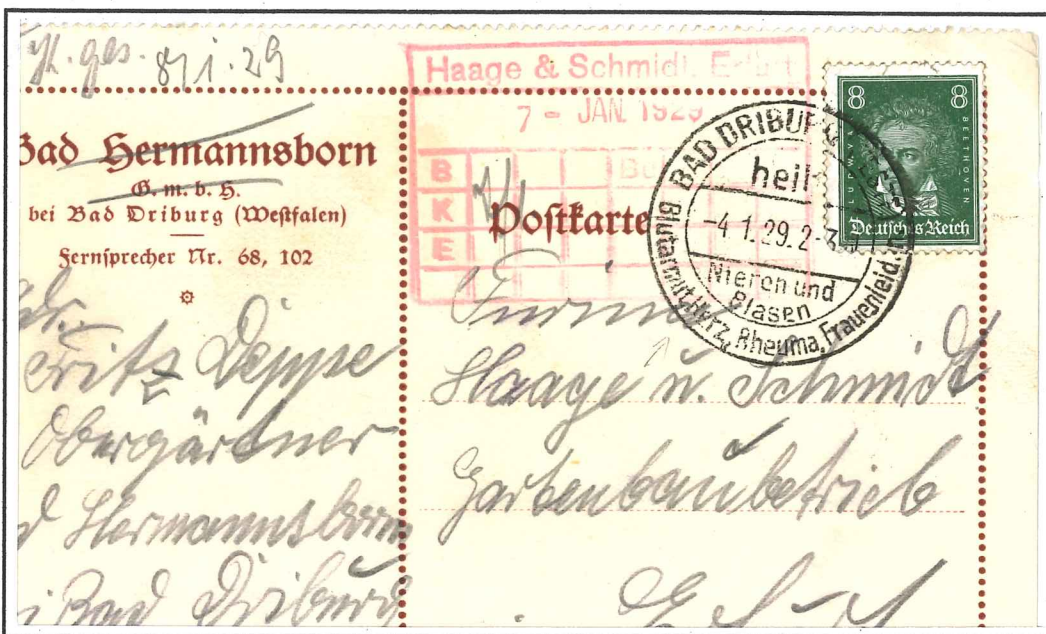 ges. 8/1.29
Bad Hermannsborn
G. m. b. H.
bei Bad Driburg (Westfalen)
Fernsprecher Nr. 68, 102
Fritz Deppe
Obergärtner
Hermannsborn
Bad Driburg
Haage & Schmidt, Erfurt
7 - JAN. 1929
B
K
E
Postkarte
BAD DRIBURG
heilt
-4.1.29.2-3
Nieren und
Blasen
Blutarmut, Herz, Rheuma, Frauenleid.
8 8
LUDW. VAN BEETHOVEN
Deutsches Reich
Firma
Haage u. Schmidt
Gartenbaubetrieb